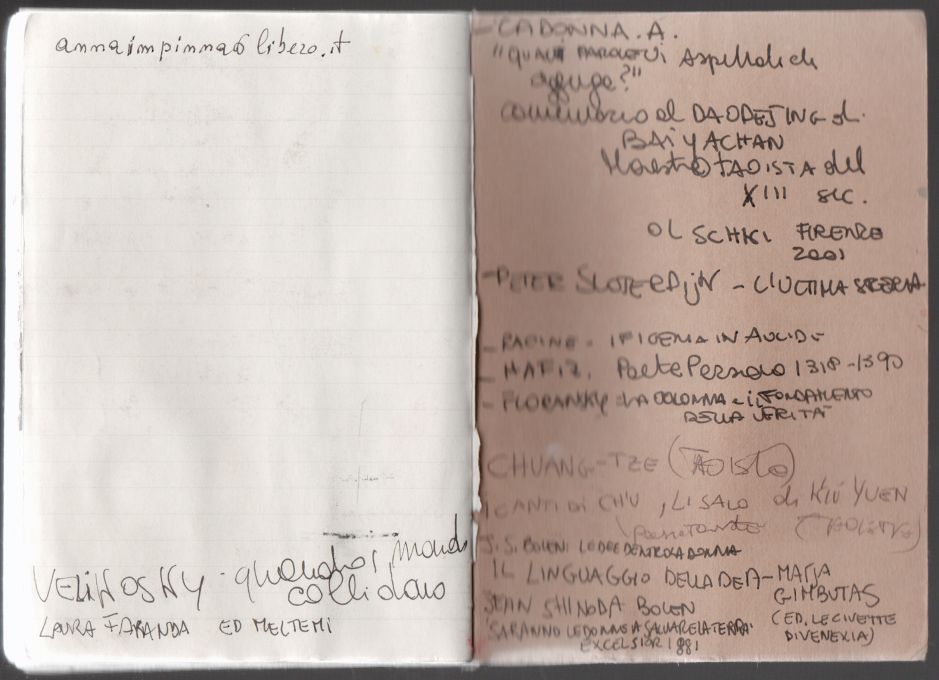 annaimpinna@libero.it
VELIKOSKY - quando i mondi
collidono
LAURA FARANDA ED MELTEMI
- CADONNA. A.
"QUALI PAROLE VI ASPETTATE CHE
AGGIUNGA?"
commentario al DAODEJING di
BAI YACHAN
Maestro TAOISTA del
XIII SEC.
OLSCHKI FIRENZE
2001
- PETER SLOTERDIJK - L'ULTIMA SFERA
- RACINE - IFIGENIA IN AULIDE
- HAFIZ. Poeta Persiano 1318-1390
- FLORENSKY - LA COLONNA E IL FONDAMENTO
DELLA VERITÀ
CHUANG-TZE (TAOISTA)
I CANTI DI CH'U, LI SAO di KIÚ YUEN
J. S. BOLEN LE DEE DENTRO LA DONNA
IL LINGUAGGIO DELLA DEA - MARIJA
GIMBUTAS
JEAN SHINODA BOLEN
(ED. LE CIVETTE
DI VENEXIA)
"SARANNO LE DONNE A SALVARE LA TERRA"
EXCELSIOR 1881